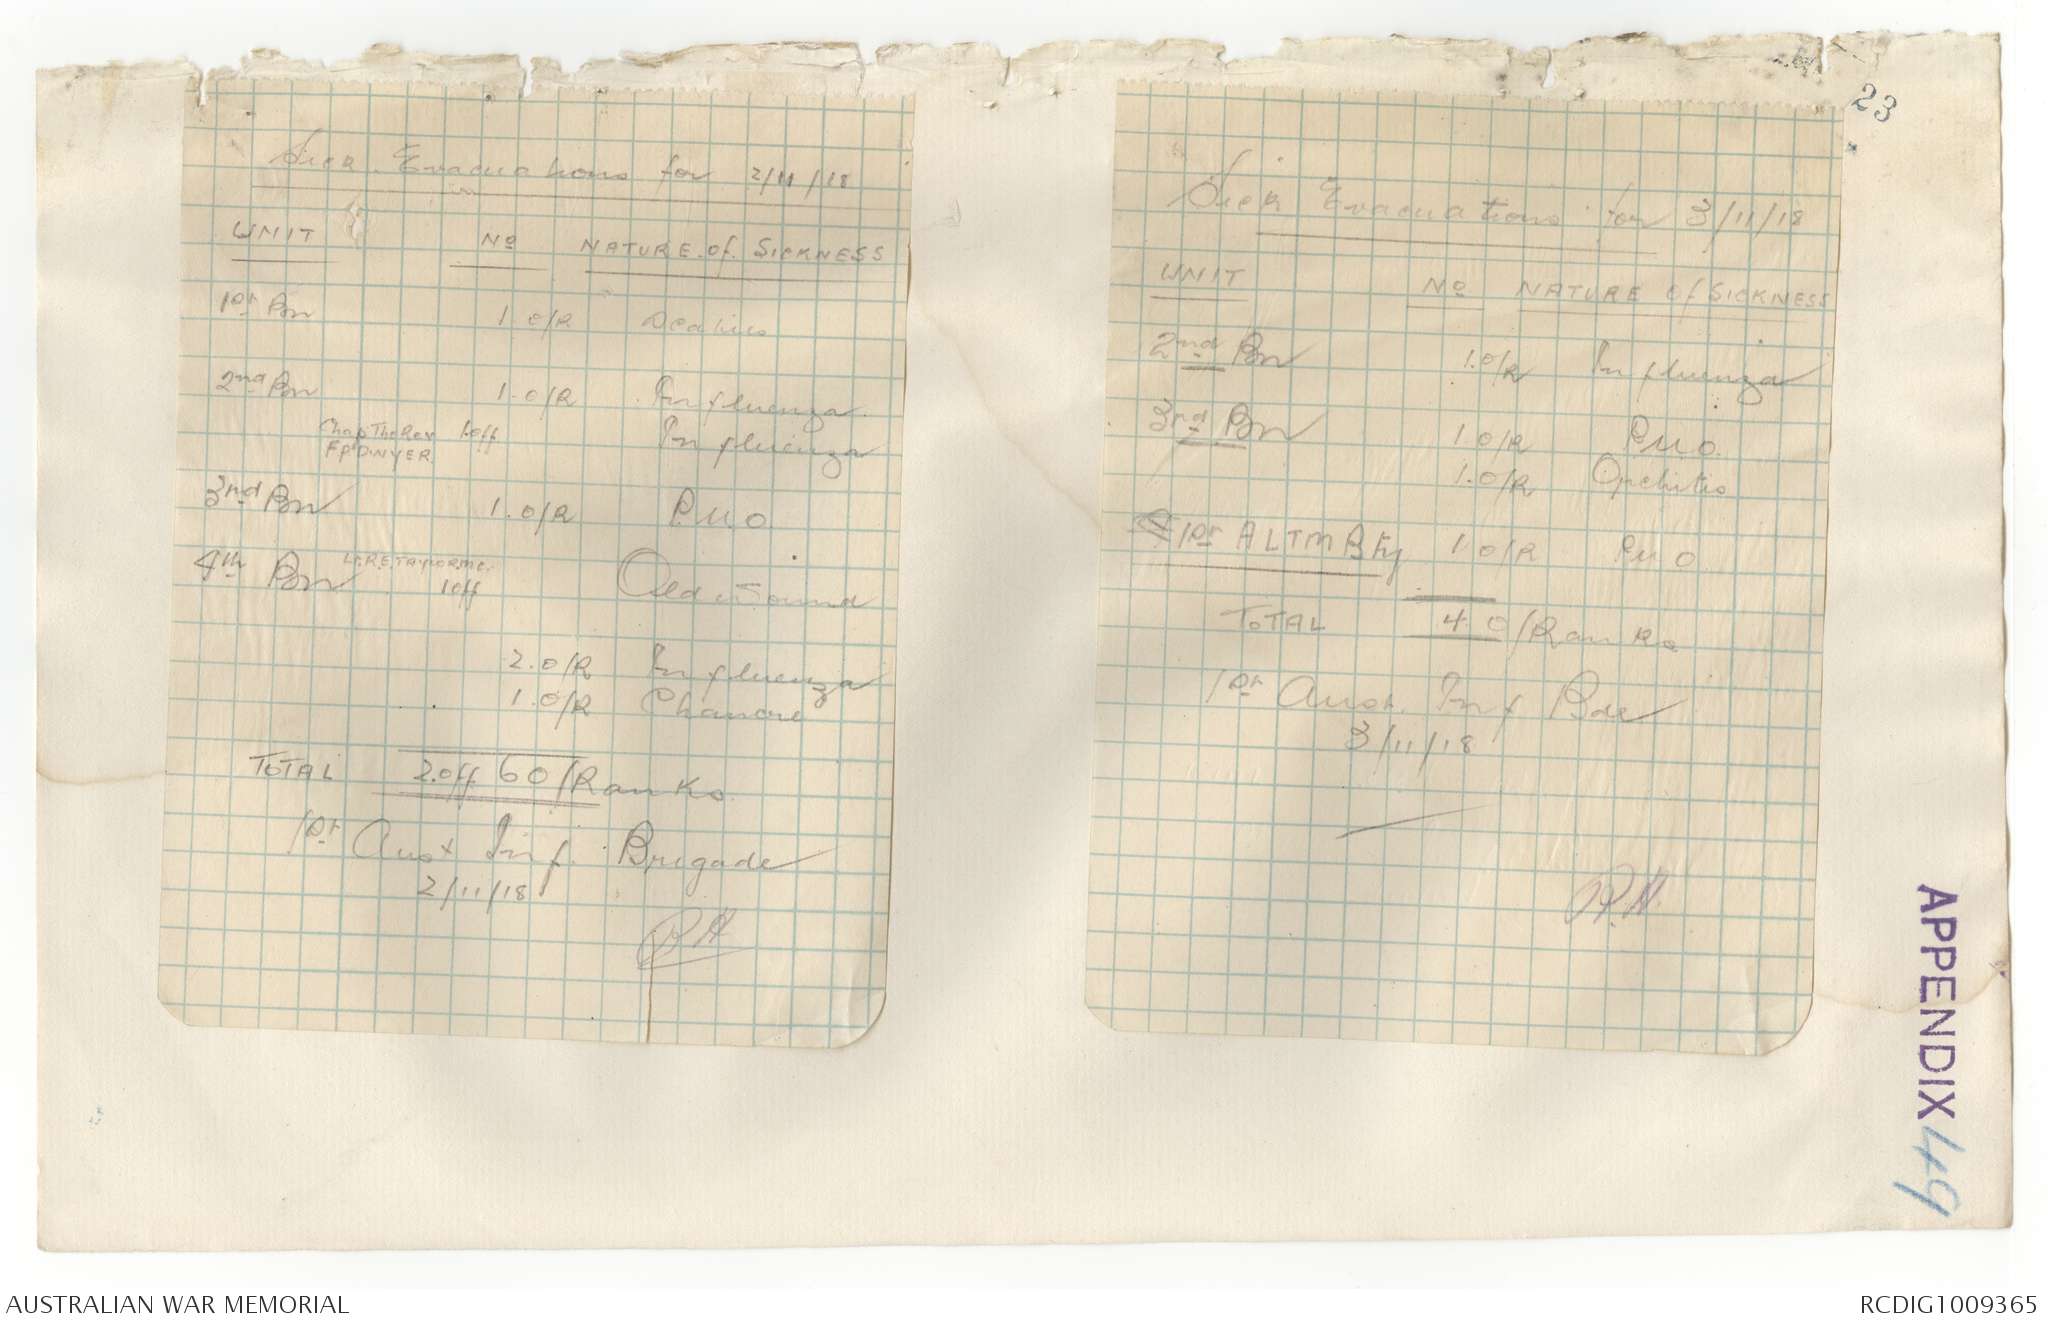 23
Sick Evacuations for 2/11/18
UNIT No NATURE of SICKNESS
1st Bn 1 O/R Scabies
2nd Bn 1. O/R Influenza
Chap The Rev 1 off Influenza
F P DWYER
3rd Bn 1. O/R P.U.O
4th Bn Lt R.E. TAYLOR M.C. 1 off Old Wound
2. O/R Influenza
1. O/R Chancre
TOTAL 2. off 6 O/Ranks
1st Aust Inf. Brigade
2/11/18
P.H.
Sick Evacuations for 3/11/18
UNIT No NATURE of SICKNESS
2nd Bn 1. O/R Influenza
3rd Bn 1 O/R P.U.O.
1. O/R Orchitis
1st A L T M Bty 1 O/R P U O
TOTAL 4 O/Ranks
1st Aust. Inf Bde
3/11/18
P.H.
APPENDIX 49
AUSTRALIAN WAR MEMORIAL
RCDIG1009365